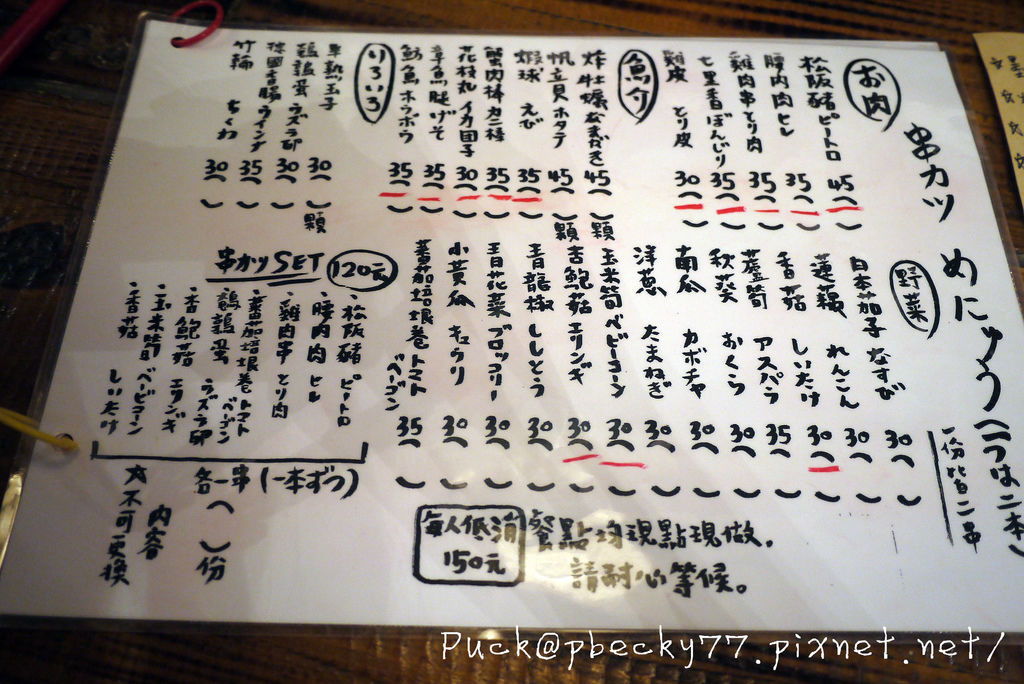 串カツ めにゅう(一つは二本)
一份皆二串
お肉
松阪豬 ピートロ 45( )
腰內肉 ヒレ 35( )
雞肉串 とり肉 35( )
七里香 ぼんじり 35( )
雞皮 とり皮 30( )
魚介
炸牡蠣 なまがき 45( )顆
帆立貝 ホタテ 45( )顆
蝦球 えび 35( )
蟹肉棒 カニ棒 35( )
花枝丸 イカ団子 30( )
章魚腿 げそ 35( )
魴魚 ホウボウ 35( )
いろいろ
半熟玉子 30( )顆
鵪鶉蛋 ラズラ卵 30( )
德國香腸 ウィンナ 35( )
竹輪 ちくわ 30( )
野菜
日本茄子 なすび 30( )
蓮藕 れんこん 30( )
香菇 しいたけ 30( )
蘆筍 アスパラ 35( )
秋葵 おくら 30( )
南瓜 カボチャ 30( )
洋蔥 たまねぎ 30( )
玉米筍 ベビーコーン 30( )
杏鮑菇 エリンギ 30( )
青龍椒 ししとう 30( )
青花菜 ブロッコリー 30( )
小黃瓜 キュウリ 30( )
蕃茄培根卷 トマトベーコン 35( )
串カツSET 120元
・松阪豬 ピートロ
腰內肉 ヒレ
・雞肉串 とり肉
・蕃茄培根卷 トマトベーコン
鵪鶉蛋 ラズラ卵
・杏鮑菇 エリンギ
・玉米筍 ベビコーン
・香菇 しいたけ
各一串(一本ずつ)
( )份
內容
不可更換
每人低消
150元
餐點均現點現做,
請耐心等候。
Puck@pbecky77.pixnet.net/